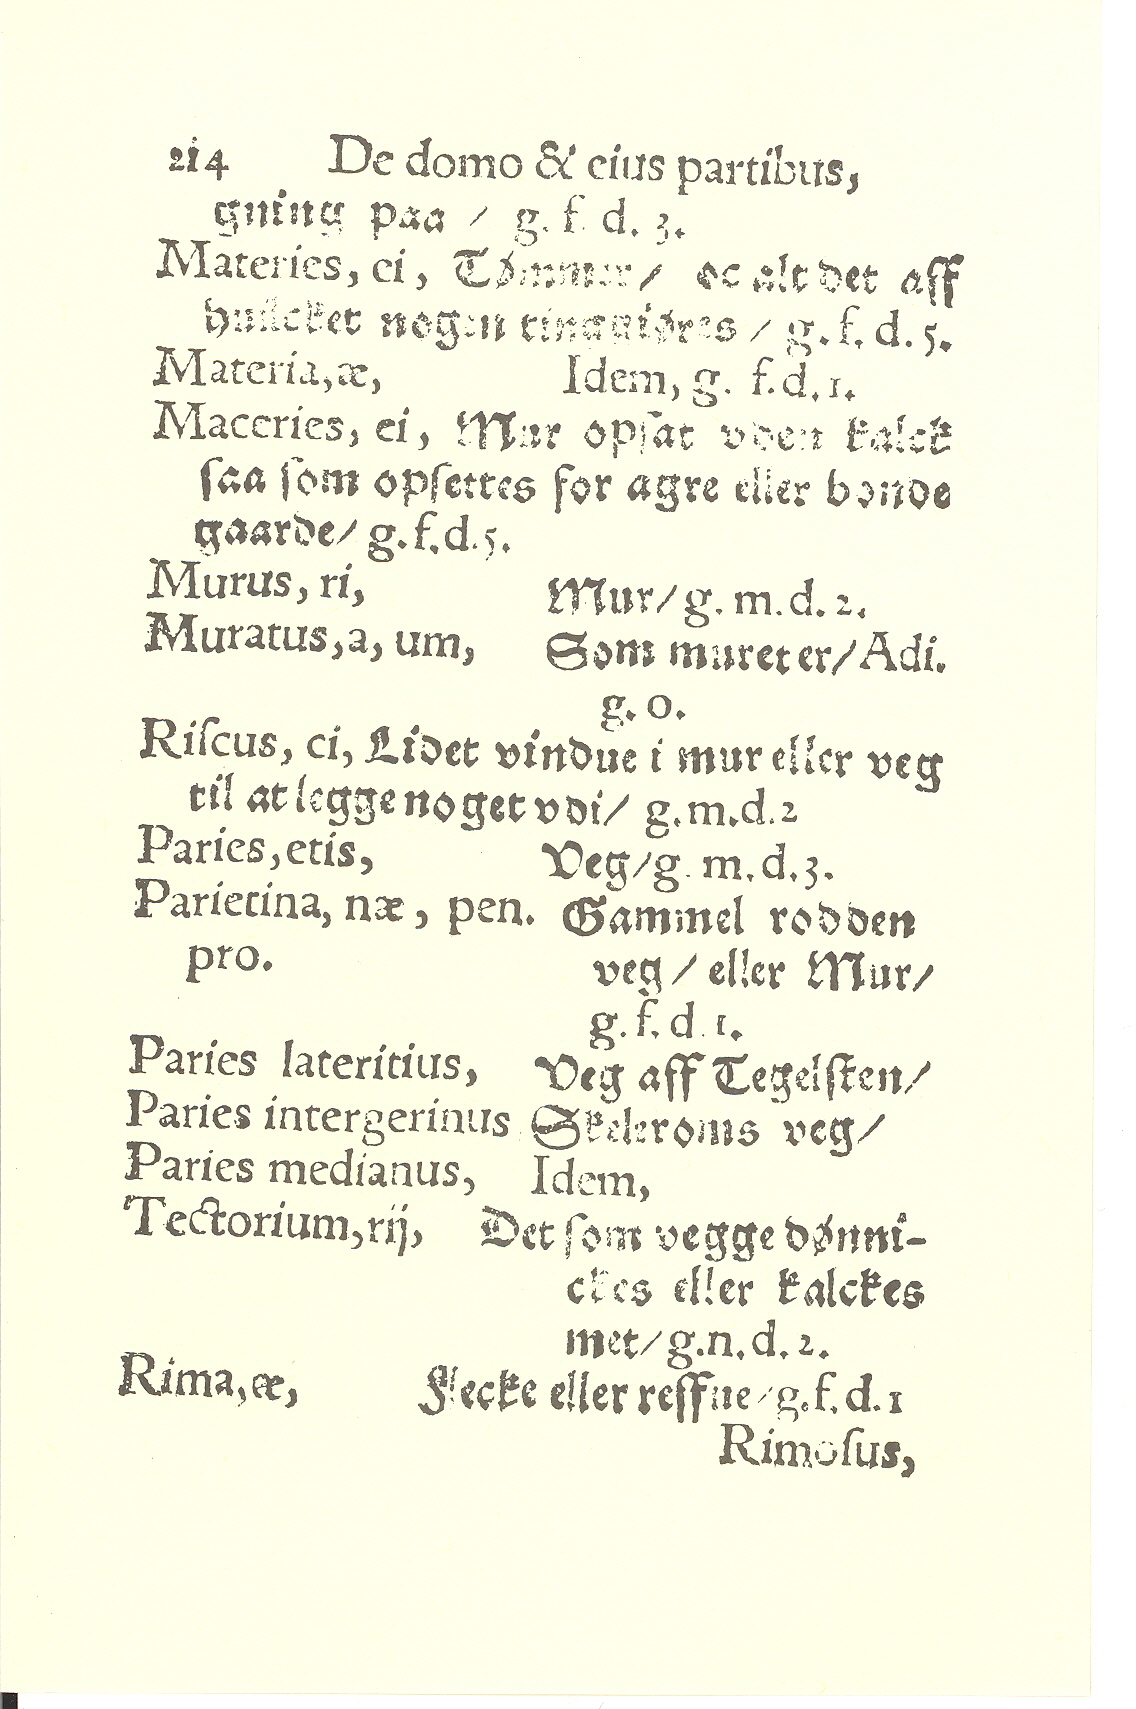 214 De domo & eius partibus,
gning paa / g. f. d. 3.
Materies, ei, Tømmer / oc alt det aff
huilcket nogen ting giøres / g. f. d. 5.
Materia, æ, Idem, g. f. d. 1.
Maceries, ei, Mur opſat vden kalck
ſaa ſom opſettes for agre eller bonde
gaarde / g. f. d. 5.
Murus, ri, Mur / g. m. d. 2.
Muratus, a, um, Som muret er / Adi.
g. o.
Riſcus, ci, Lidet vindue i mur eller veg
til at legge noget vdi / g. m. d. 2
Paries, etis, Veg / g. m. d. 3.
Parietina, næ, pen. Gammel rodden
pro. veg / eller Mur /
g. f. d. 1.
Paries lateritius, Veg aff Tegelſten /
Paries intergerinus Skeleroms veg /
Paries medianus, Idem,
Tectorium, rij, Det ſom vegge dønni-
ckes eller kalckes
met / g. n. d. 2.
Rima, æ, Flecke eller reffne / g. f. d. 1
Rimoſus,